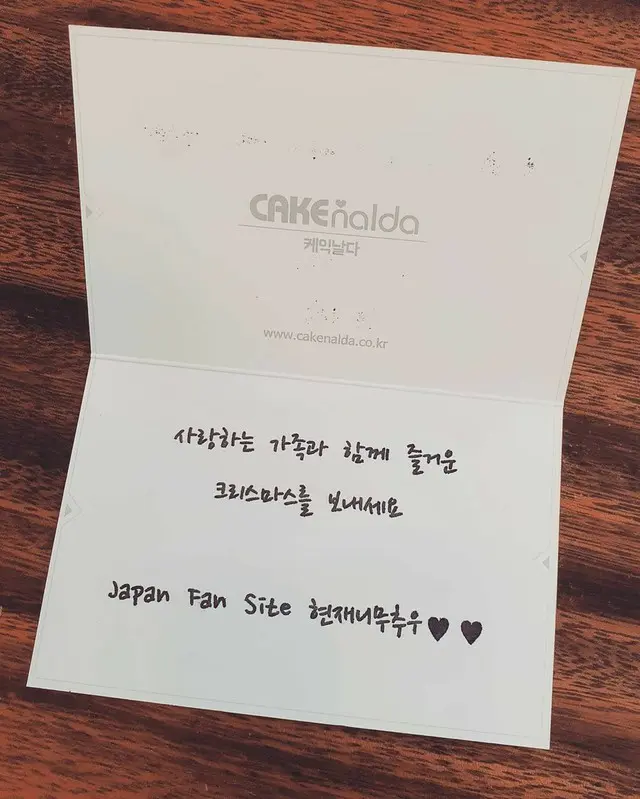 CAKEnalda
케익날다
www.cakenalda.co.kr
사랑하는 가족과 함께 즐거운
크리스마스를 보내세요
Japan Fan Site 현재니무추우♥♥